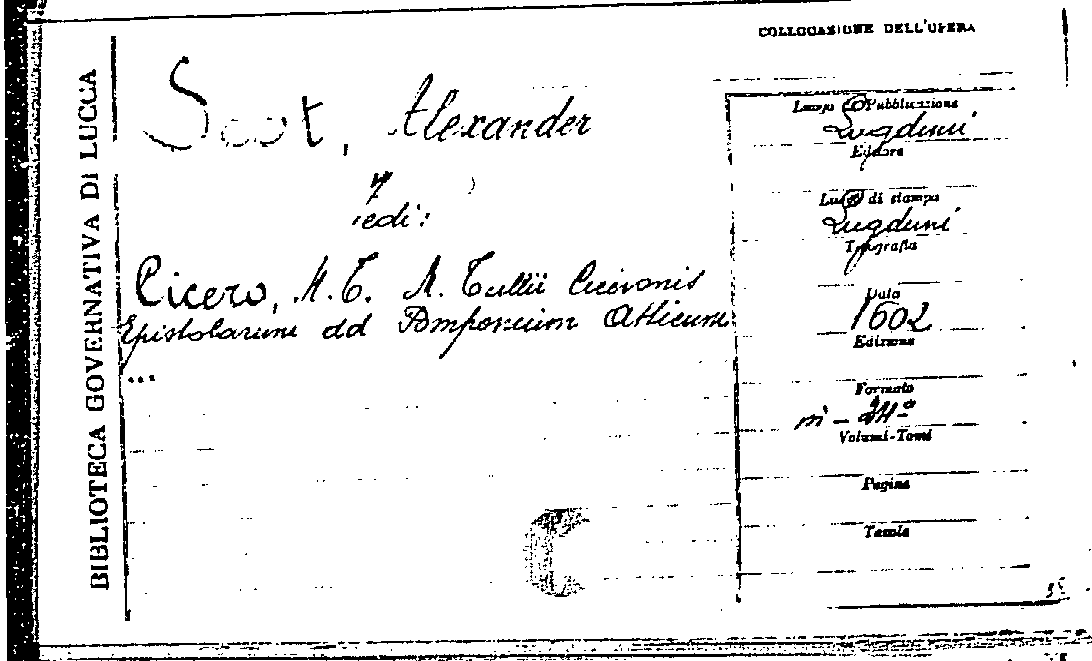 COLLOCAZIONE DELL'OPERA
BIBLIOTECA GOVERNATIVA DI LUCCA
Scot, Alexander
Vedi:
Cicero, M.T. M. Tullii Ciceronis
Epistolarum ad Pomponium Atticum
...
Luogo di Pubblicazione
Lugduni
Editore
Luogo di stampa
Lugduni
Tipografia
Data
1602
Edizione
Formato
in-24º
Volumi-Tomi
Pagine
Tavole